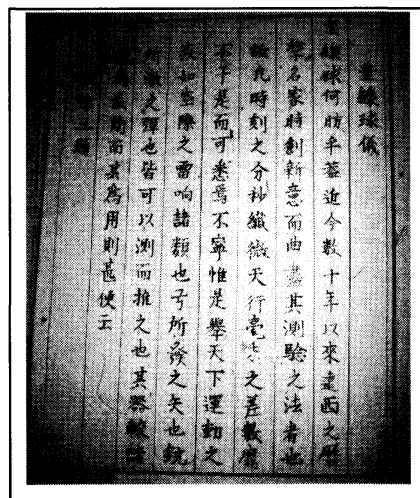 垂線球儀
垂線球何昉乎蓋近今數十年以來遠西之曆
學名家時創新意而曲盡其測驗之法者也
故凡時刻之分秒纖微天行毫忽之差數靡
不于是而可悉焉不寧惟是舉天下運動之
疾如空際之雷响諸類也弓所發之矢也銃
所激之彈也皆可以測而推之也其器較
而其為用則甚便云